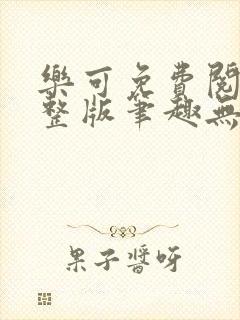 樂可免費閱
整版筆趣無
果子醬呀